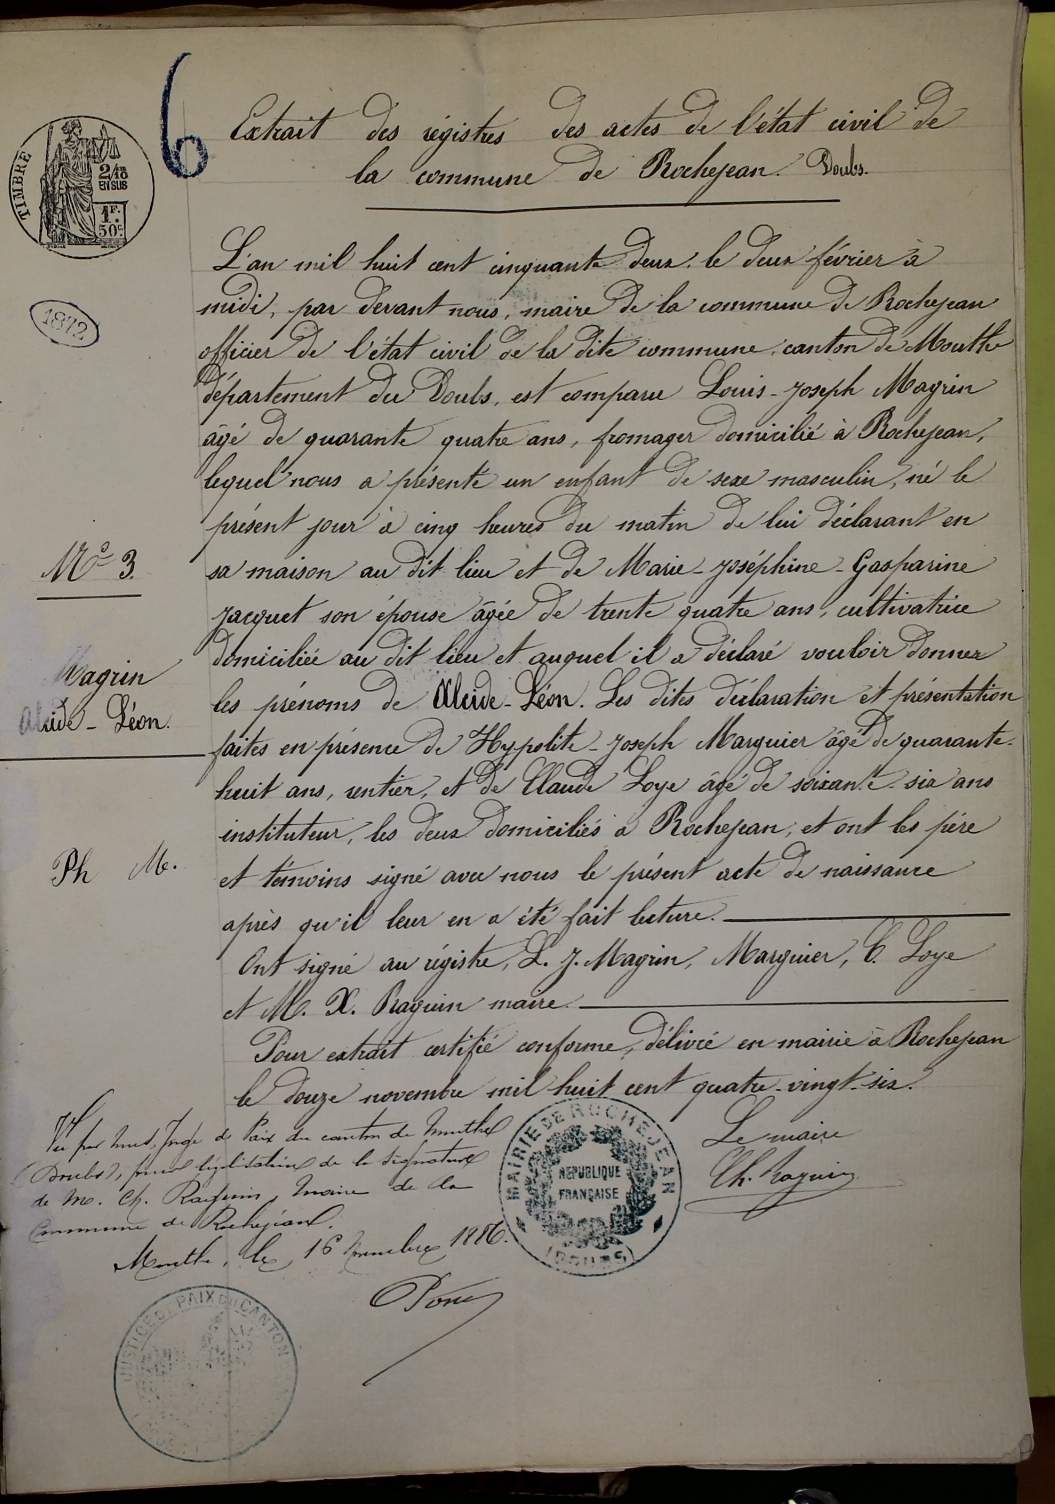 6
TIMBRE
2/10
EN SUS
1F.
50c.
1872
Extrait des régistres des actes de l'état civil de
la commune de Rochejean. Doubs.
L'an mil huit cent cinquante deux, le deux février à
midi, par devant nous, maire de la commune de Rochejean
officier de l'état civil de la dite commune, canton de Mouthe
département du Doubs, est comparu Louis-Joseph Magrin
âgé de quarante quatre ans, fromager domicilié à Rochejean,
lequel nous a présenté un enfant de sexe masculin, né le
présent jour à cinq heures du matin de lui déclarant en
sa maison au dit lieu et de Marie-Joséphine-Gasparine
Jacquet son épouse âgée de trente quatre ans, cultivatrice
domiciliée au dit lieu et auquel il a déclaré vouloir donner
les prénoms de Alcide-Léon. Les dites déclaration et présentation
faites en présence de Hypolite-Joseph Marguier âgé de quarante-
huit ans, rentier, et de Claude Loye âgé de soixante-six ans
instituteur, les deux domiciliés à Rochejean, et ont les père
et témoins signé avec nous le présent acte de naissance
après qu'il leur en a été fait lecture.
Ont signé au régistre, L. J. Magrin, Marguier, C. Loye
et M. X. Raguin maire.
Pour extrait certifié conforme, délivré en mairie à Rochejean
le douze novembre mil huit cent quatre-vingt-six.
No 3.
Magrin
Alcide-Léon.
Ph M.
Le maire
Ch. Raguin
MAIRIE DE ROCHEJEAN
RÉPUBLIQUE
FRANÇAISE
(DOUBS)
Vu par nous, Juge de Paix du canton de Mouthe
(Doubs), pour légalisation de la signature
de M. Ch. Raguin, maire de la
Commune de Rochejean.
Mouthe, le 16 novembre 1886.
JUSTICE DE PAIX DU CANTON